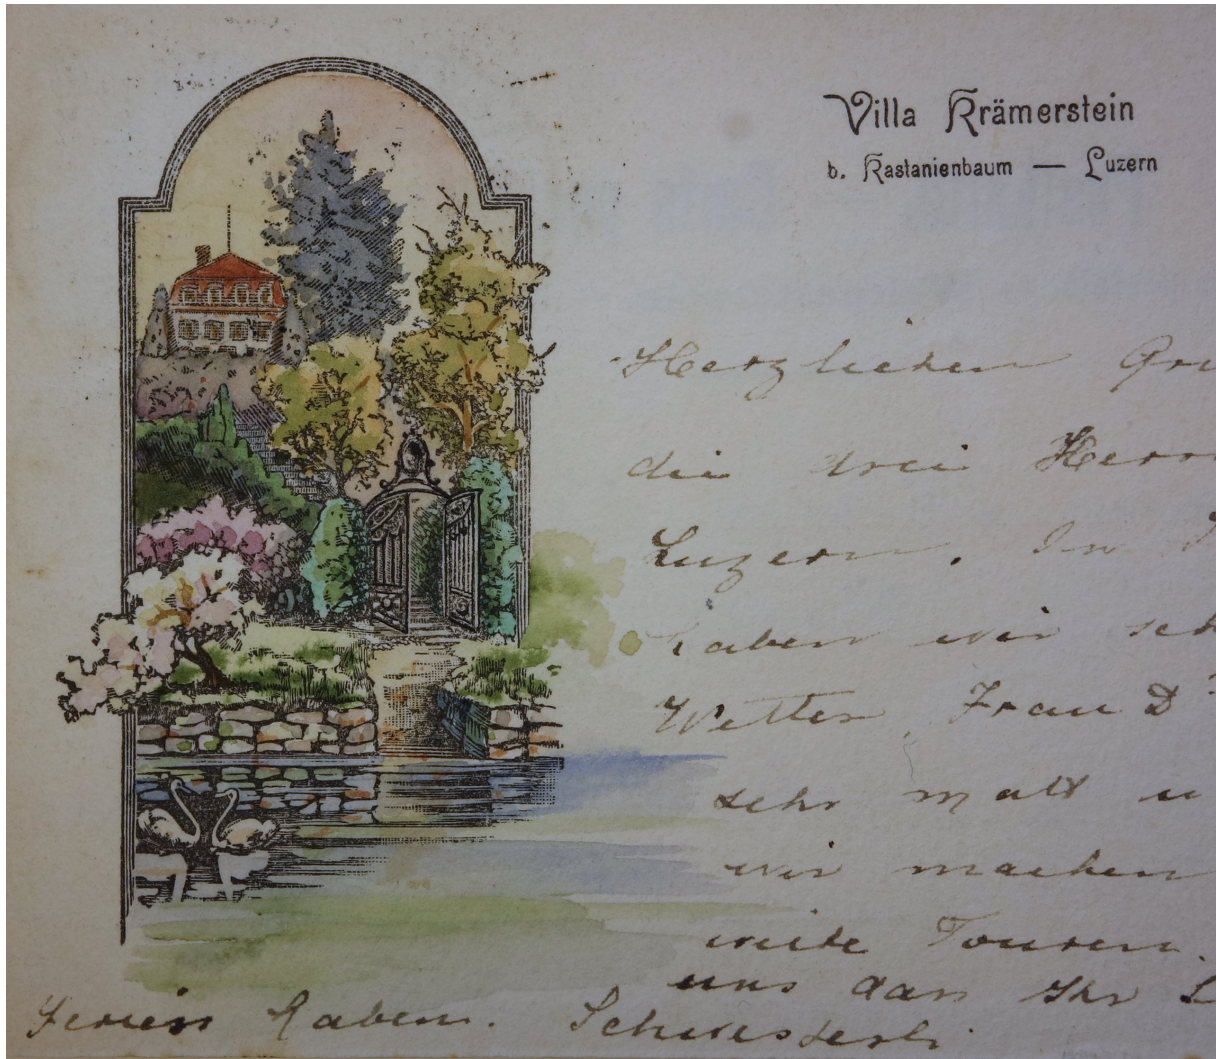 Villa Krämerstein
b. Kastanienbaum — Luzern
Herzlichen
die drei
Luzern. In
haben wir
Wetter. Frau D
sehr matt u
wir machen
weite Touren.
uns dan Ihr
Ferien haben. Schwesterli.